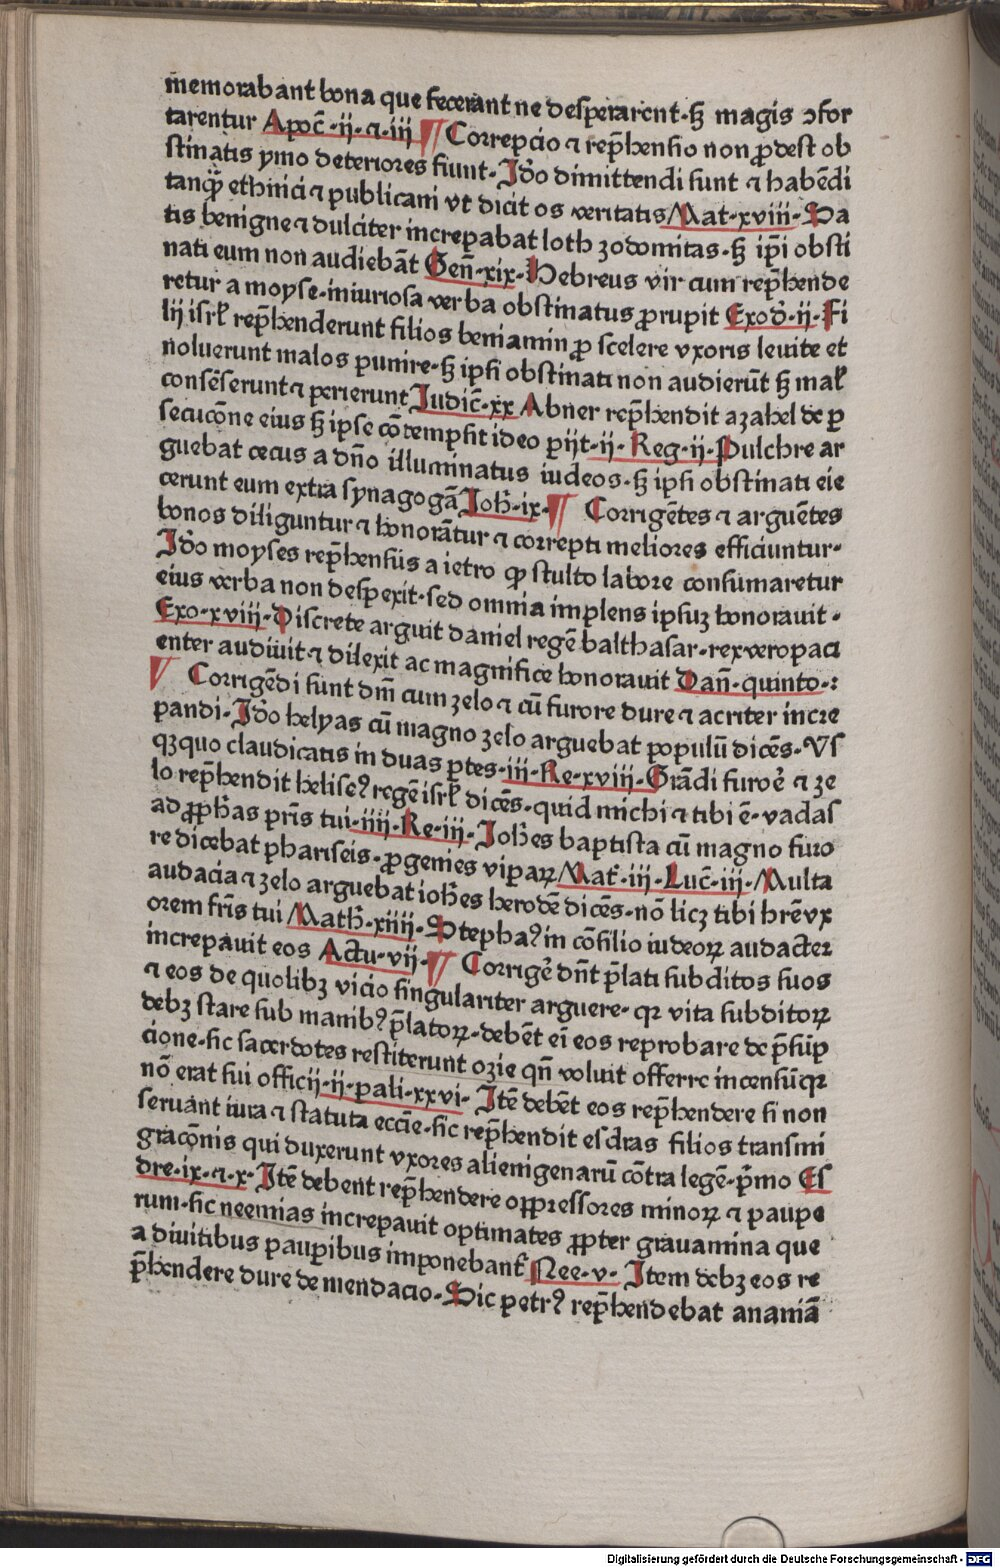 m̄emorabant bona que fecerant ne desperarent·sꝫ magis ↄfor
tarentur Apoc̄·ii·⁊·iii ¶ Correpcio ⁊ rep̄hensio non ꝓdest ob
stinatis ymo deteriores fiunt· Id̄o dimittendi sunt ⁊ habēdi
tanqͣ̄ ethinici ⁊ publicani vt dicit os veritatis Mat·xviii·Sa
tis benigne ⁊ dulciter increpabat loth zodomitas·sꝫ ip̄i obsti
nati eum non audiebāt Gen̄·xix·Hebreus vir cum rep̄hende
retur a moyse·iniuriosa verba obstinatus ꝓrupit Exod̄·ii·Fi
lii isrl̄ rep̄henderunt filios beniamin ꝓ scelere vxoris leuite et
noluerunt malos punire·sꝫ ipsi obstinati non audierūt sꝫ mal̄
consēserunt ⁊ perierunt Iudic̄·xx Abner rep̄hendit azahel de ꝑ
secucōne eius sꝫ ipse cōtempsit ideo ꝑijt·ii·Reg·ii·Pulchre ar
guebat cecus a dn̄o illuminatus iudeos·sꝫ ipsi obstinati eie
cerunt eum extra synagogā Ioh̄·ix·¶ Corrigētes ⁊ arguētes
bonos diliguntur ⁊ honorātur ⁊ correpti meliores efficiuntur·
Id̄o moyses rep̄hensus a ietro ꝙ stulto labore consumaretur
eius verba non despexit·sed omnia implens ipsuꝫ honorauit·
Exo·xviii·Discrete arguit daniel regē balthasar·rex vero paci
enter audiuit ⁊ dilexit ac magnifice honorauit Dan̄·quinto·:
¶ Corrigēdi sunt dn̄i cum zelo ⁊ cū furore dure ⁊ acriter incre
pandi·Id̄o helyas cū magno zelo arguebat populū dicēs·Vs
qꝫ quo claudicatis in duas ꝑtes·iii·Re·xviii·Grādi furoē ⁊ ze
lo rep̄hendit heliseꝰ regē isrl̄ dicēs·quid michi ⁊ tibi ē·vadas
ad ꝓph̄as pr̄is tui·iiii·Re·iii·Ioh̄es baptista cū magno furo
re dicebat phariseis·ꝓgenies viꝑaꝝ Mat̄·iii·Luc̄·iii·Multa
audacia ⁊ zelo arguebat ioh̄es herodē dicēs·nō licꝫ tibi hr̄e vx
orem fr̄is tui Math̄·xiiii·Stephaꝰ in cōsilio iudeoꝝ audacter
increpauit eos Actu·vii·¶ Corrigē dn̄t p̄lati subditos suos
⁊ eos de quolibꝫ vicio singulariter arguere·qꝛ vita subditoꝝ
debꝫ stare sub manibꝰ p̄latoꝝ·debēt ei eos reprobare de p̄sūp
cione·sic sacerdotes restiterunt ozie qn̄ voluit offerre incensū qꝛ
nō erat sui officij·ii·pali·xxvi·Itē debēt eos rep̄hendere si non
seruant iura ⁊ statuta eccīe·sic rep̄hendit esdras filios transmi
gracōnis qui duxerunt vxores alienigenarū cōtra legē·p̄mo Es
dre·ix·⁊·x·Itē debent rep̄hendere oppressores minoꝝ ⁊ paupe
rum·sic neemias increpauit optimates ꝓpter grauamina que
a diuitibus pauꝑibus imponebant̄ Nee·v·Item debꝫ eos re
p̄hendere dure de mendacio·Sic petrꝰ rep̄hendebat ananiā
Digitalisierung gefördert durch die Deutsche Forschungsgemeinschaft - DFG